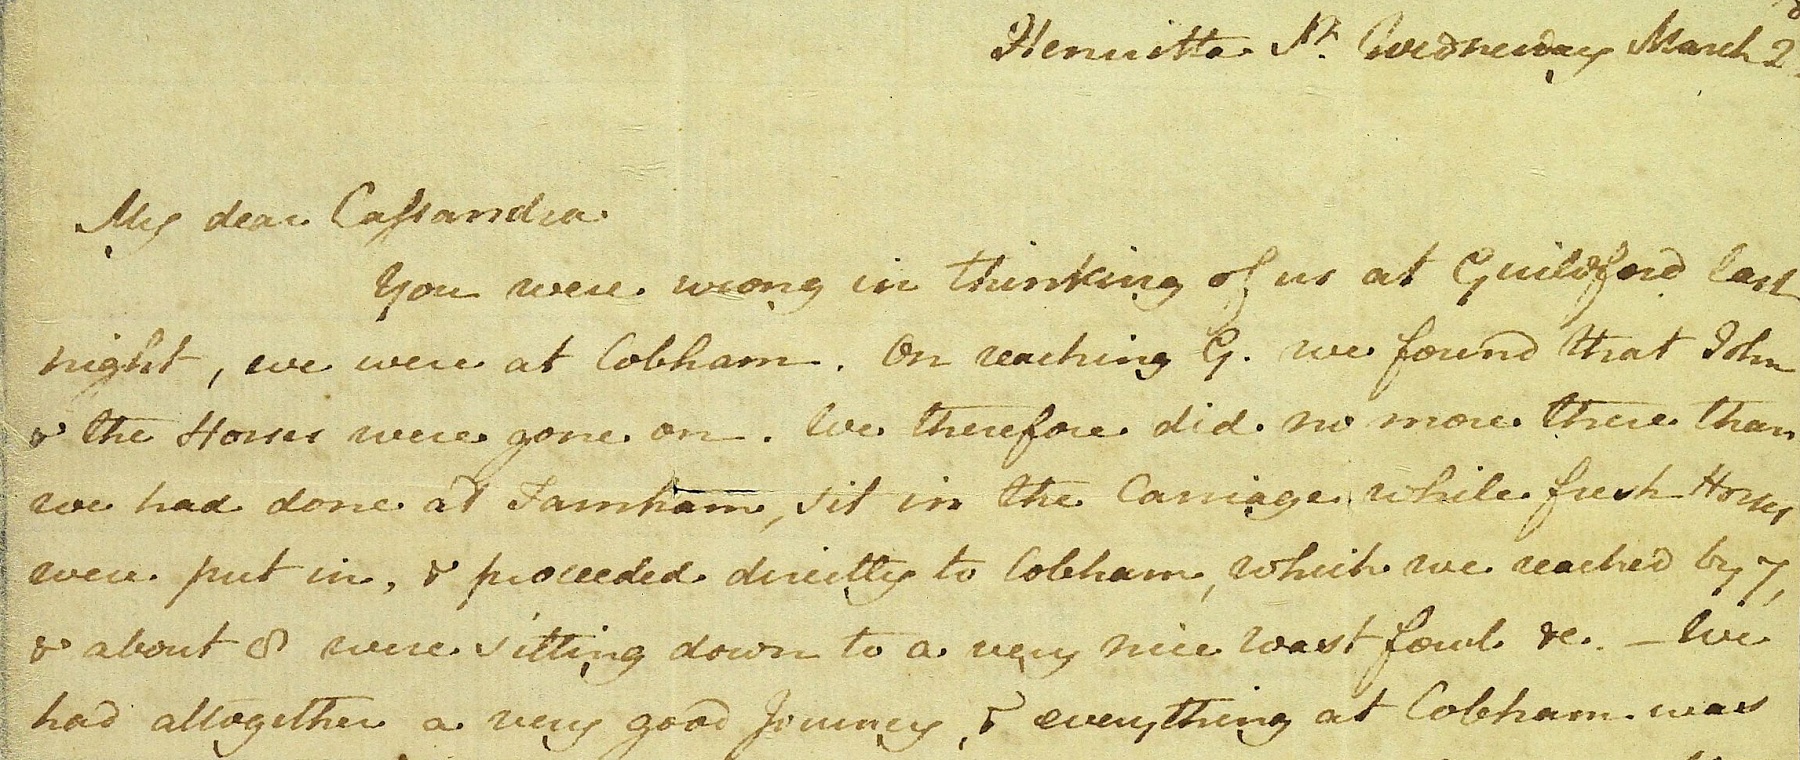 Henrietta St. Wednesday March 2
My dear Cassandra
You were wrong in thinking of us at Guildford last
night, we were at Cobham. On reaching G. we found that John
& the Horses were gone on. We therefore did no more there than
we had done at Farnham, sit in the Carriage while fresh Horses
were put in, & proceeded directly to Cobham, which we reached by 7,
& about 8 were sitting down to a very nice roast fowl &c. – We
had altogether a very good Journey, & everything at Cobham was